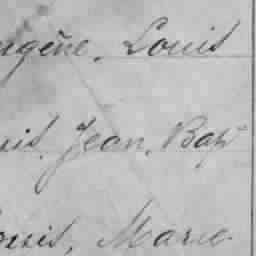 ugène, Louis
uis, Jean, Bapt
ouis, Marie